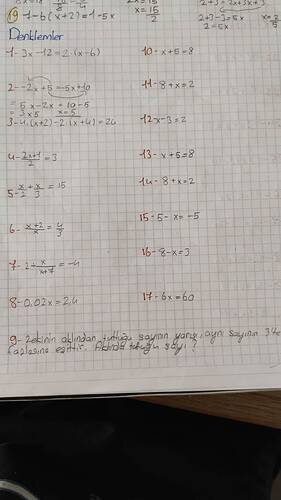 x = 15/2
2+3-3=5x x=2/5
2=5x
19 1-6(x+2)=1-5x
Denklemler
1- 3x-12=2.(x-6)
10- x+5=8
2- -2x+5=-5x+10
= 5x-2x=10-5
= 3x5 x=5
11- 8+x=2
3- 4.(x+2)-2.(x+4)=24
12 x-3=2
4- 2x+1/2 = 3
13- x+5=8
14- 8+x=2
5- x/2 + x/3 = 15
15- 5-x=-5
6- x+2/x = 4/3
16- 8-x=3
7- 2+ x/x+7 = -4
8- 0,02x=2,4
17- 6x=60
9- Zekinin aklından tuttuğu sayının yarısı, aynı sayının
fazlasına eşittir. Aklında tuttuğu sayı?